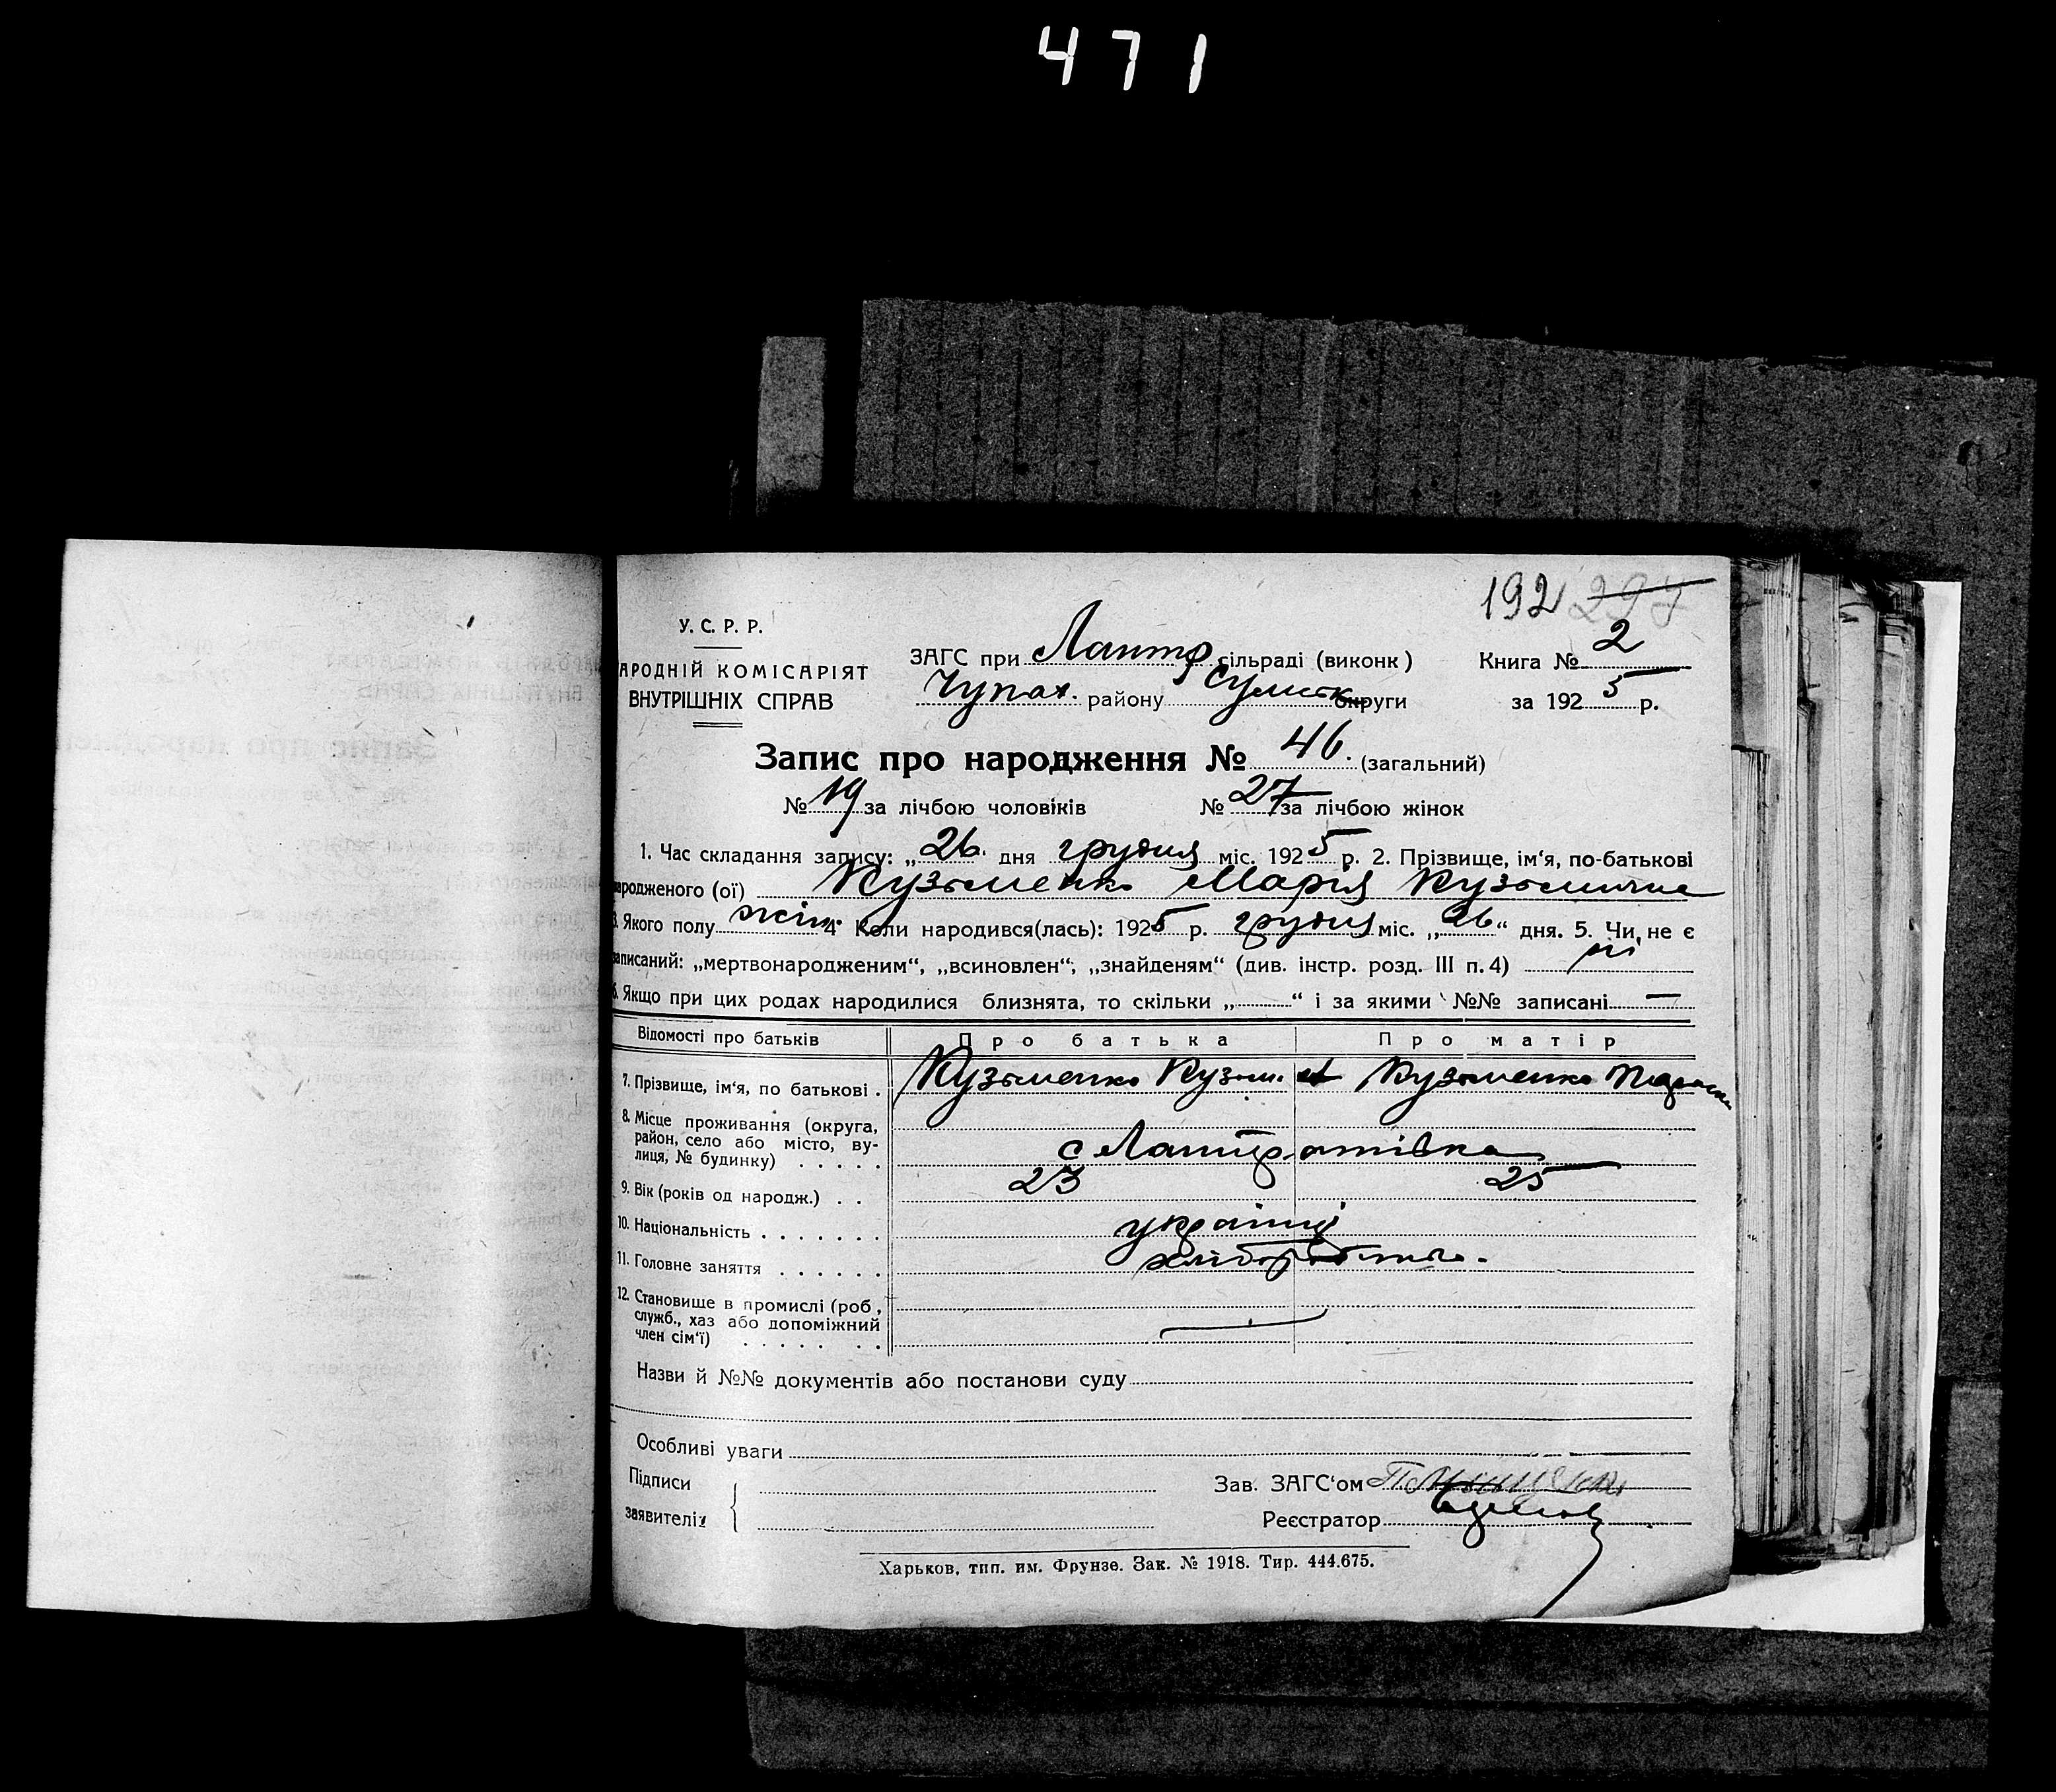 471
192 297
У. С. Р. Р.
АРОДНІЙ КОМІСАРІЯТ
ВНУТРІШНІХ СПРАВ
ЗАГС при Лантр сільраді (виконк)
Чупах. району Сумськ округи
Книга № 2
за 1925 р.
Запис про народження № 46. (загальний)
№ 19 за лічбою чоловіків № 27 за лічбою жінок
1. Час складання запису: „26. дня грудня міс. 1925 р. 2. Прізвище, ім'я, по-батькові
ародженого (ої) Кузьменко Марія Кузьмична
3. Якого полу жін. 4 Коли народився(лась): 1925 р. грудня міс. „26“ дня. 5. Чи не є
записаний: „мертвонародженим“, „всиновлен“; „знайденям“ (див. інстр. розд. III п. 4) ні
6. Якщо при цих родах народилися близнята, то скільки „ “ і за якими №№ записані —
Відомості про батьків Про батька Про матір
7. Прізвище, ім'я, по батькові . Кузьменко Кузьм. Кузьменко
8. Місце проживання (округа,
район, село або місто, ву-
лиця, № будинку) . . . . . с Лантратівка
9. Вік (років од народж.) . . 23 25
10. Національність . . . . . . . українці
11. Головне заняття . . . . . . хлібороби
12. Становище в промислі (роб,
служб., хаз або допоміжний
член сім'ї) . . . . . . .
Назви й №№ документів або постанови суду
Особливі уваги
Підписи
заявителів
Зав. ЗАГС'ом
Реєстратор
Харьков, тип. им. Фрунзе. Зак. № 1918. Тир. 444.675.